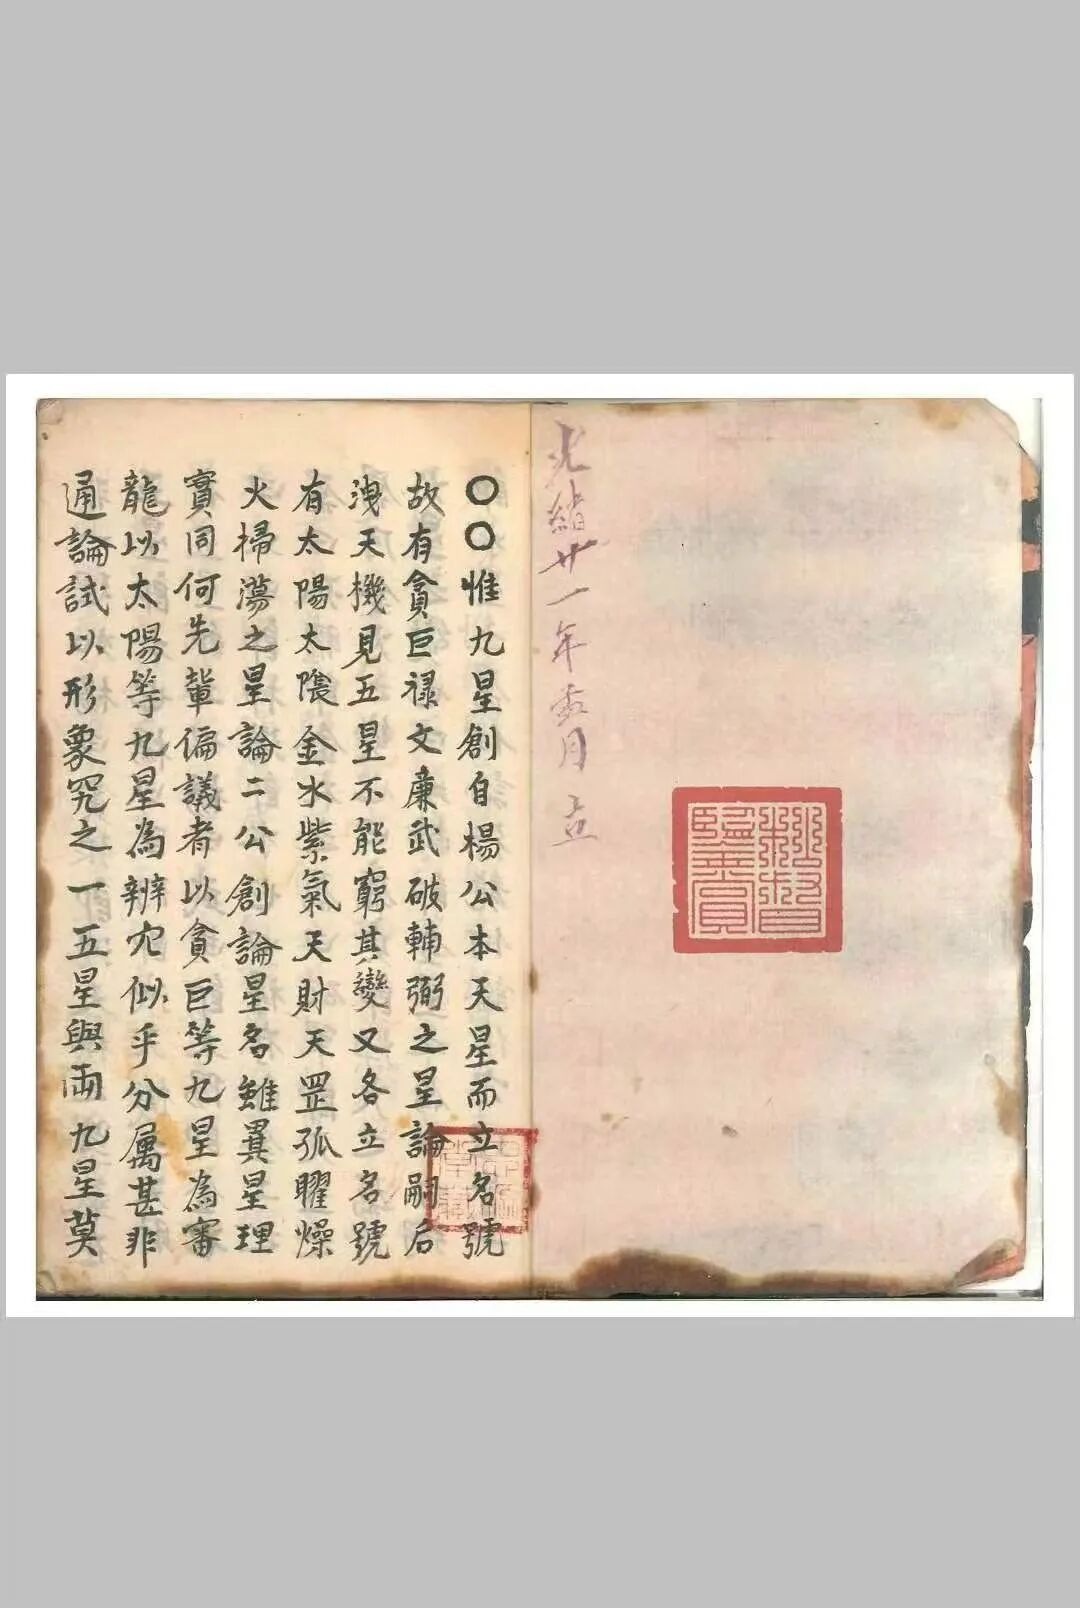 光緒廿一年 月 立
〇〇惟九星創自楊公本天星而立名號
故有貪巨禄文廉武破輔弼之星論嗣后
洩天機見五星不能窮其變又各立名號
有太陽太隂金水紫氣天財天罡孤曜燥
火掃蕩之星論二公創論星名雖異星理
實同何先輩偏議者以貪巨等九星為審
龍以太陽等九星為辨穴似乎分属甚非
通論試以形象究之一五星與兩九星莫